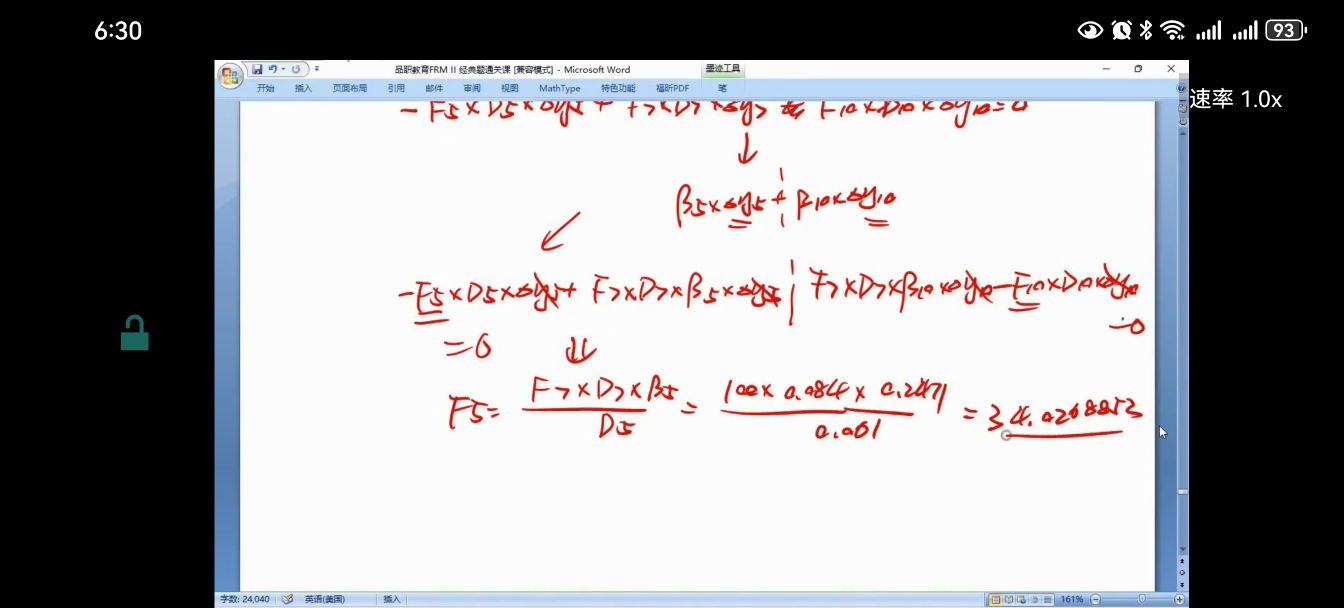 6:30
93
品职教育FRM II 经典题通关课 [兼容模式] - Microsoft Word
墨迹工具
开始 插入 页面布局 引用 邮件 审阅 视图 MathType 特色功能 福昕PDF 笔
速率 1.0x
- F5 × D5 × Δy5 + F7 × D7 × Δy7 F10 × D10 × Δy10 = 0
↓
β5 × Δy5 + β10 × Δy10
-F5 × D5 × Δy5 + F7 × D7 × β5 × Δy5 | F7 × D7 × β10 × Δy10 - F10 × D10 × Δy10
= 0
= 0 ⇓
F5 = F7 × D7 × β5 / D5 = 100 × 0.084 × 0.2471 / 0.061 = 34.0268853
字数: 24,040 英语(美国) 插入 161%